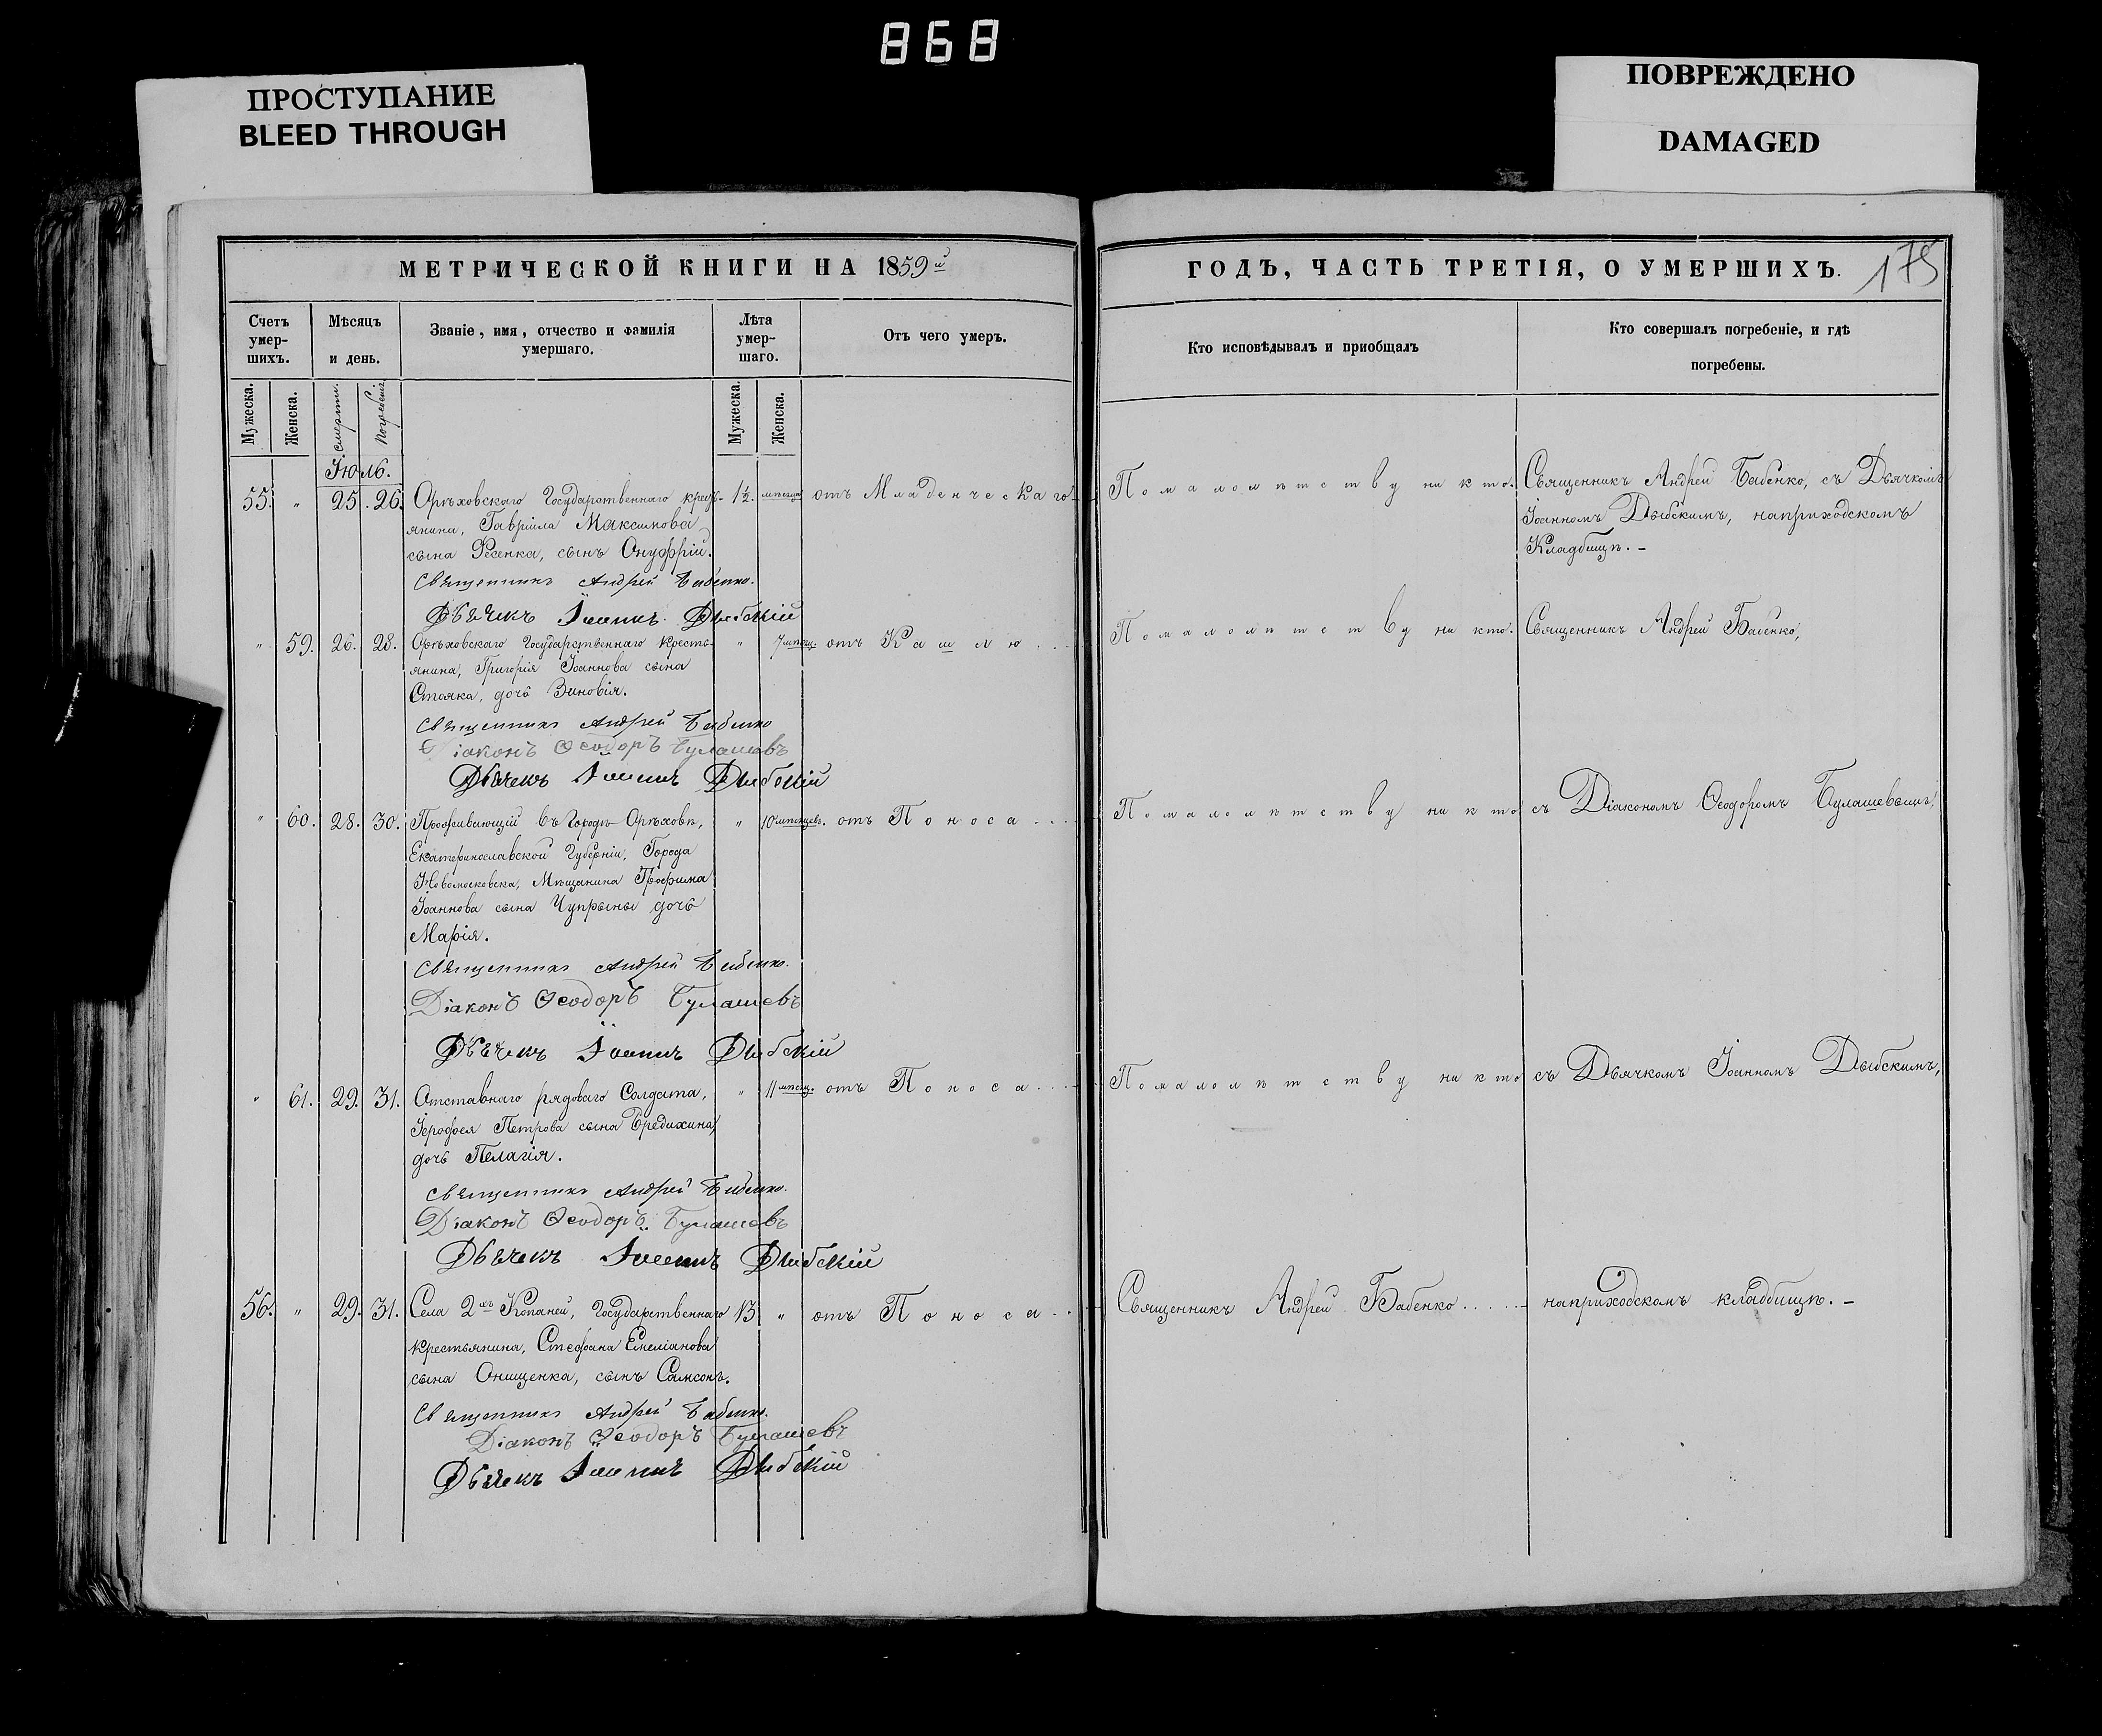 868
ПРОСТУПАНИЕ
BLEED THROUGH
ПОВРЕЖДЕНО
DAMAGED
МЕТРИЧЕСКОЙ КНИГИ НА 1859й
Счетъ умер-шихъ.
Мѣсяцъ и день.
Званіе, имя, отчество и фамилія умершаго.
Лѣта умер-шаго.
Отъ чего умеръ.
Мужеска.
Женска.
смерти.
погребенія
Мужеска.
Женска.
Іюль.
55. " 25. 26. Орѣховскаго Государственнаго кресть- 1½ мѣсяца отъ Младенческаго
янина, Гавріила Максимова
сына Фесенка, сынъ Онуфрій.
Священникъ Андрей Бабенко.
Дьячекъ Іоаннъ Дыбскій
" 59. 26. 28. Орѣховскаго Государственнаго кресть- " 7 мѣсяц. отъ Кашлю . . .
янина, Григорія Іоаннова сына
Стояка, дочь Зиновія.
Священникъ Андрей Бабенко
Діаконъ Ѳеодоръ Булашевъ
Дьячекъ Іоаннъ Дыбскій
" 60. 28. 30. Проживающій въ Городѣ Орѣховѣ, " 10 мѣсяцевъ. отъ Поноса . . .
Екатеринославской Губерніи, Города
Новомосковска, Мѣщанина Трофима
Іоаннова сына Чупрыны дочь
Марія.
Священникъ Андрей Бабенко.
Діаконъ Ѳеодоръ Булашевъ
Дьячекъ Іоаннъ Дыбскій
" 61. 29. 31. Отставнаго рядоваго Солдата, " 11 мѣсяц. отъ Поноса . . .
Іерофея Петрова сына Бредихина,
дочь Пелагія.
Священникъ Андрей Бабенко.
Діаконъ Ѳеодоръ Булашевъ
Дьячекъ Іоаннъ Дыбскій
56. " 29. 31. Села 2хъ Копаней, Государственнаго 13 " отъ Поноса . . .
крестьянина, Стефана Емеліанова
сына Онищенка, сынъ Самсонъ.
Священникъ Андрей Бабенко.
Діаконъ Ѳеодоръ Булашевъ
Дьячекъ Іоаннъ Дыбскій
ГОДЪ, ЧАСТЬ ТРЕТІЯ, О УМЕРШИХЪ.
175
Кто исповѣдывалъ и пріобщалъ
Кто совершалъ погребеніе, и гдѣ погребены.
По малолѣтству никто. Священникъ Андрей Бабенко, съ Дьячкомъ
Іоанномъ Дыбскимъ, на приходскомъ
Кладбищѣ. –
По малолѣтству никто. Священникъ Андрей Бабенко,
По малолѣтству никто съ Діакономъ Ѳеодоромъ Булашевымъ,
По малолѣтству никто съ Дьячкомъ Іоанномъ Дыбскимъ,
Священникъ Андрей Бабенко . . . . . на приходскомъ кладбищѣ. –